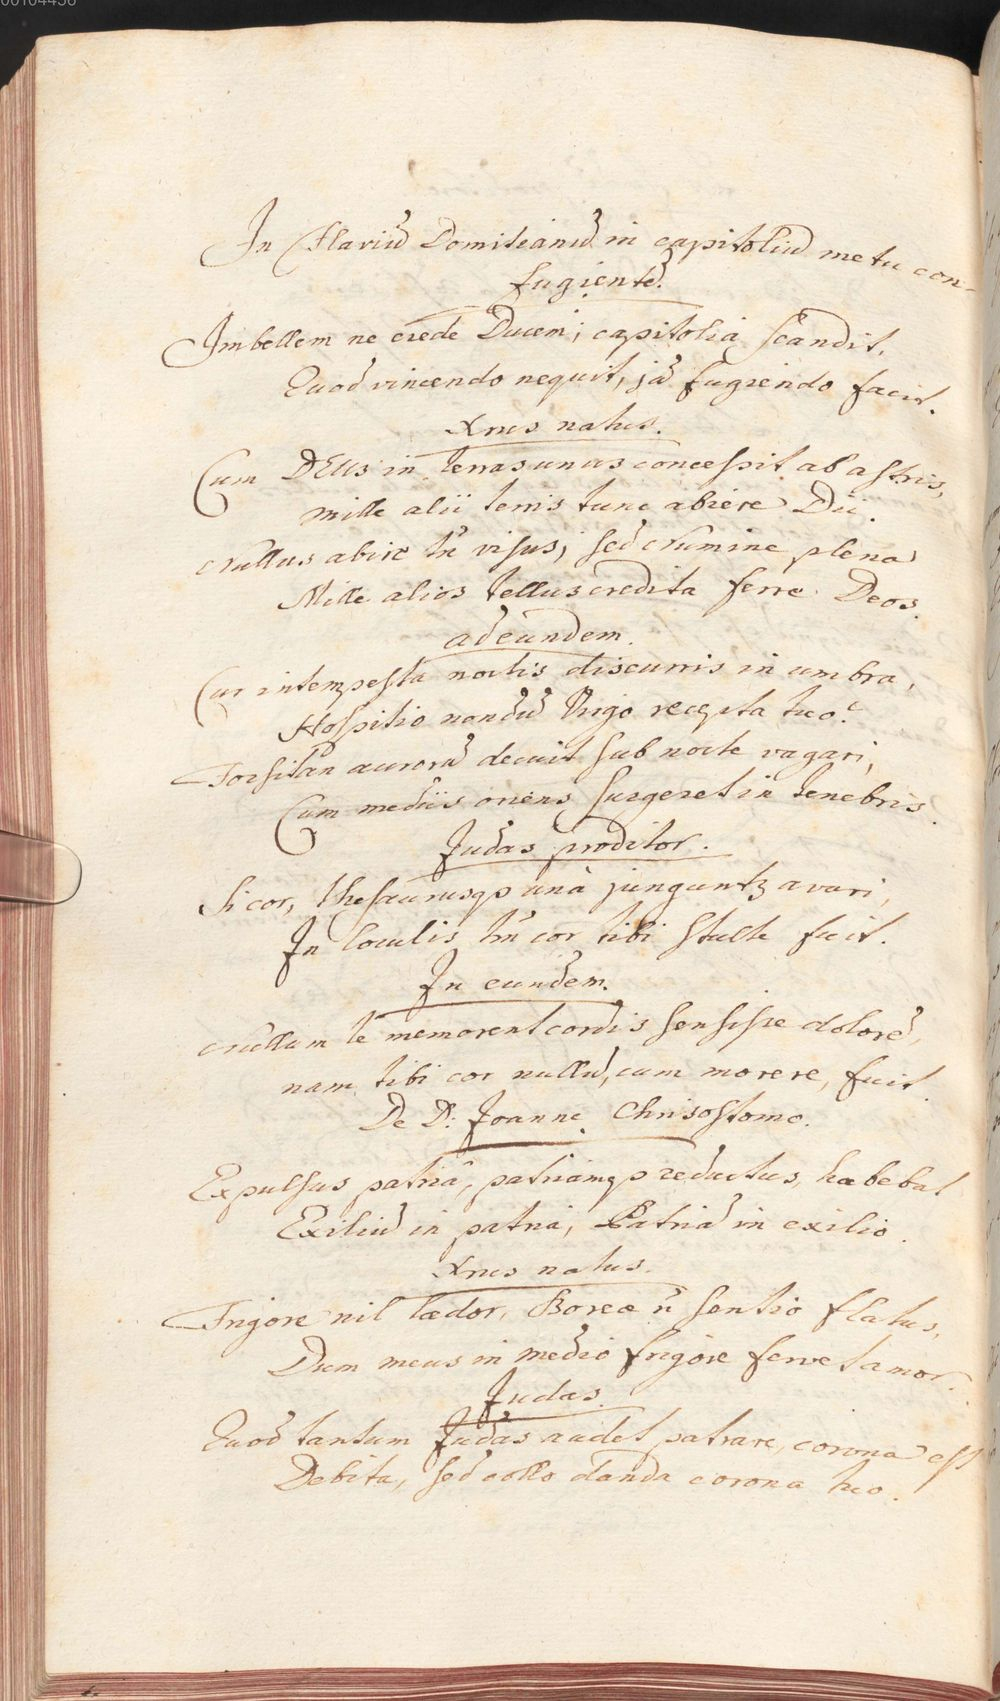 00104456
In Flaviū Domitianū in capitoliū metu con-
fugientē.
Imbellem ne crede Ducem; capitolia scandit,
Quod vincendo nequit, jā fugiendo facit.
Xrus natus.
Cum DEus in terras unus concessit ab astris,
mille alii terris tunc abiere Dii.
Nullus abire tn̄ visus; sed crimine plena
Mille alios tellus credita ferre Deos.
ad eundem.
Cur intempesta noctis discurris in umbra,
Hospitio nondū Virgo recepta tuo?
Forsitan aurorā decuit sub nocte vagari,
Cum mediis oriens surgeret in tenebris.
Judas proditor.
Si cor, thesaurusqȝ unà junguntȝ avari,
In loculis tn̄ cor tibi stulte fuit.
In eundem.
Nullum te memorent cordis sensisse dolorē,
nam tibi cor nullū, cum morere, fuit.
De D: Joanne Chrisostomo.
Expulsus patriâ, patriamqȝ reductus, habebat
Exiliū in patria, Patriā in exilio.
Xrus natus.
Frigore nil lædor, Boreæ n̄ sentio flatus,
Dum meus in medio frigore fervet amor.
Judas.
Quod tantum Judas audet patrare, corona est
Debita, sed collo danda corona tuo.